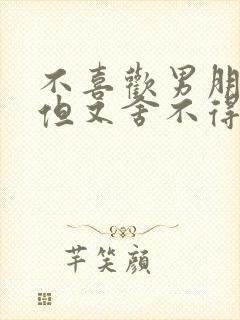 不喜歡男朋
但又舍不得
芊笑顔